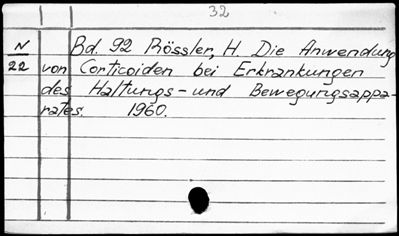 32
N
22
Bd. 92 Rössler, H. Die Anwendung
von Corticoiden bei Erkrankungen
des Haltungs- und Bewegungsappa-
rates. 1960.